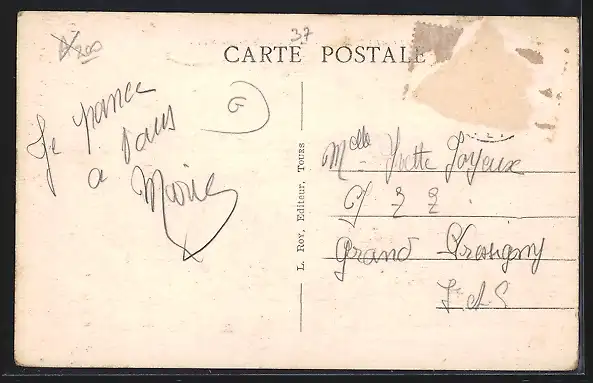 37
CARTE POSTALE
G
Je pense
a vous
L. Roy, Editeur, Tours
Mlle Yvette Joyeux
Grand Pressigny
I et L